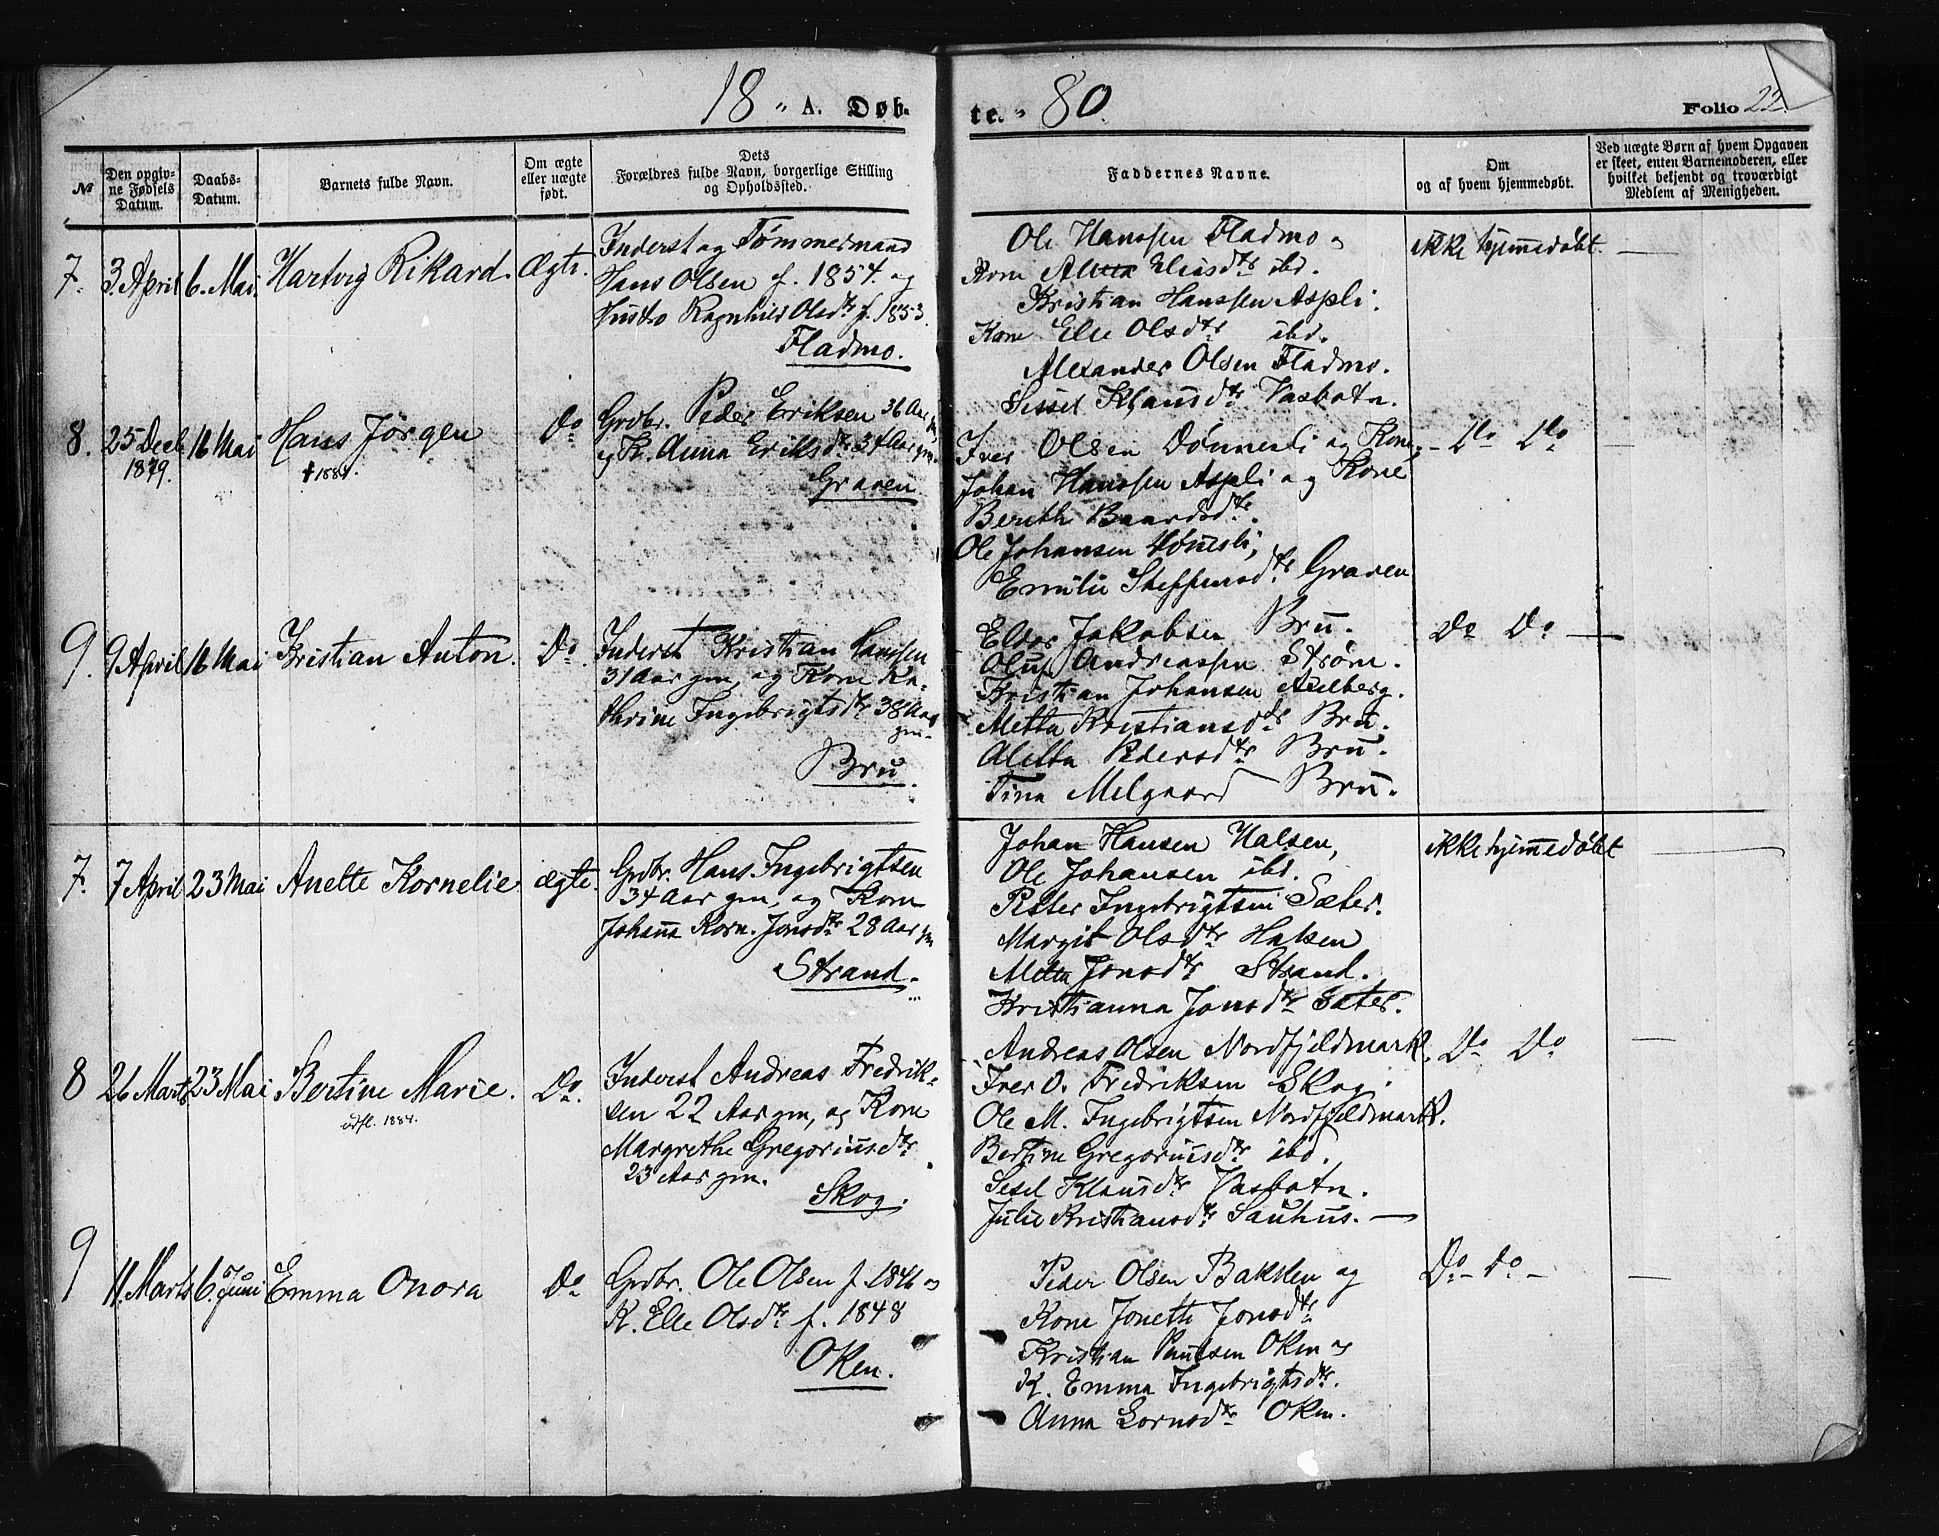 18 " A. Døb-
te. " 80.
Folio 22
№
Den opgiv-
ne Fødsels
Datum.
Daabs-
Datum.
Barnets fulde Navn.
Om ægte
eller uægte
født.
Dets
Forældres fulde Navn, borgerlige Stilling
og Opholdssted.
Faddernes Navne.
Om
og af hvem hjemmedøbt.
Ved uægte Børn af hvem Opgaven
er skeet, enten Barnemoderen, eller
hvilket bekjendt og troværdigt
Medlem af Menigheden.
7. 3 April 6. Mai. Hartvig Rikard. Ægte.
Inderst og Tømmermand
Hans Olsen f. 1854. og
Hustro Ragnhild Olsdtr f. 1853.
Fladmo.
Ole Hanssen Fladmo
Kone Eliasdtr ibd.
Kristian Hanssen Aspli.
Kone Else Olsdtr ibd.
Alexander Olsen Fladmo.
Sissel Klausdtr Vasbotn.
ikke hjemmedøbt. —
8. 25 Decb 16 Mai Hans Jørgen Do
1879.
† 1884.
Grdbr. Peder Eriksen 36 Aar gm,
og K. Anna Eriksdtr 34 Aar gm.
Graven
Iver Olsen Dønnesli og Kone
Johan Hanssen Aspli og Kone
Berith Baardsdtr.
Ole Johansen
Emilie Steffensdtr Graven
Do Do —
9. 9 April 16 Mai Kristian Anton. Do
Inderst Kristian Hanssen
31 Aar gm, og Kone Ka-
thrine Ingebrigtsdtr 38 Aar
gm.
Bru.
Eldor Jakobsen Bru.
Oluf Andreassen Strøm.
Kristian Johansen Aalberg.
Metta Kristiansdtr Bru.
Aletta Pedersdtr Bru.
Tina Melgaard Bru.
Do Do —
7. 7 April 23 Mai Anette Kornelie ægte.
Grdbr. Hans Ingebrigtsen
34 Aar gm, og Kone
Johanna Korn. Jonsdtr 28 Aar gm
Strand.
Johan Hansen Halsen,
Ole Johansen ibd.
Petter Ingebrigtsen Sæter.
Margit Olsdtr Halsen
Metta Jonsdtr Strand.
Kristianna Jonsdtr Sæter.
ikke hjemmedøbt —
8 26 Marts 23 Mai Bertine Marie. Do.
udfl. 1884.
Inderst Andreas Fredrik-
sen 22 Aar gm, og Kone
Margrethe Gregoriusdtr
23 Aar gm.
Skog.
Andreas Olsen Nordfjeldmark.
Iver O. Fredriksen Skog.
Ole M. Ingebrigtsen Nordfjeldmark.
Bertine Gregoriusdtr ibd.
Sesel Klausdtr Vasbotn.
Julie Kristiansdtr Sauhus. —
Do Do —
9 11. Marts 6. Juni Emma Onora Do
Grdbr. Ole Olsen f. 1846 og
K. Else Olsdtr f. 1848
Oken.
Peder Olsen Bakken og
Kone Jonette Jonsdtr
Kristian Paulsen Oken og
K. Emma Ingebrigtsdtr.
Anna Lornsdtr Oken.
Do – do – —